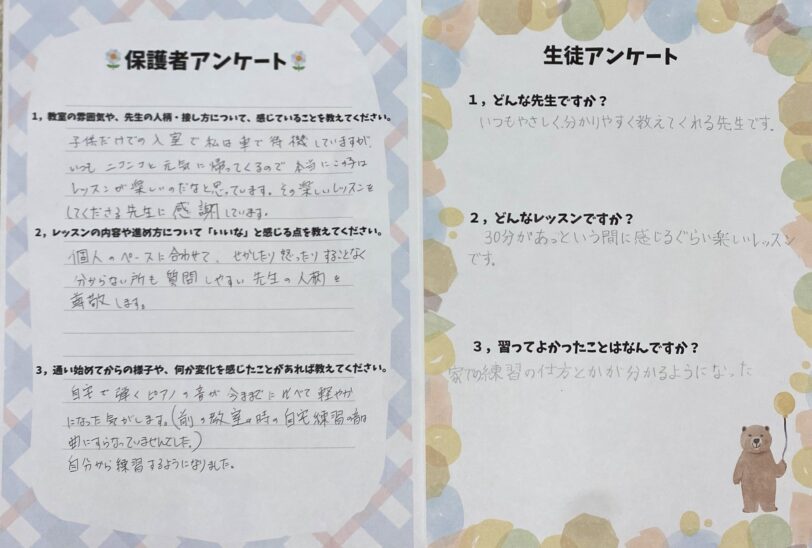 保護者アンケート
1，教室の雰囲気や、先生の人柄・接し方について、感じていることを教えてください。
子供だけでの入室で私は車で待機していますが、
いつもニコニコと元気に帰ってくるので本当にこの子は
レッスンが楽しいのだなと思っています。その楽しいレッスンを
してくださる先生に感謝しています。
2，レッスンの内容や進め方について「いいな」と感じる点を教えてください。
個人のペースに合わせて、せかしたり怒ったりすることなく
分からない所も質問しやすい先生の人柄を
尊敬します。
3，通い始めてからの様子や、何か変化を感じたことがあれば教えてください。
自宅で弾くピアノの音が今までに比べて軽やか
になった気がします。(前の教室の時の自宅練習の音は
曲にすらなっていませんでした。)
自分から練習するようになりました。
生徒アンケート
1，どんな先生ですか？
いつもやさしく、分かりやすく教えてくれる先生です。
2，どんなレッスンですか？
30分があっという間に感じるぐらい楽しいレッスン
です。
3，習ってよかったことはなんですか？
家での練習の仕方とかが分かるようになった